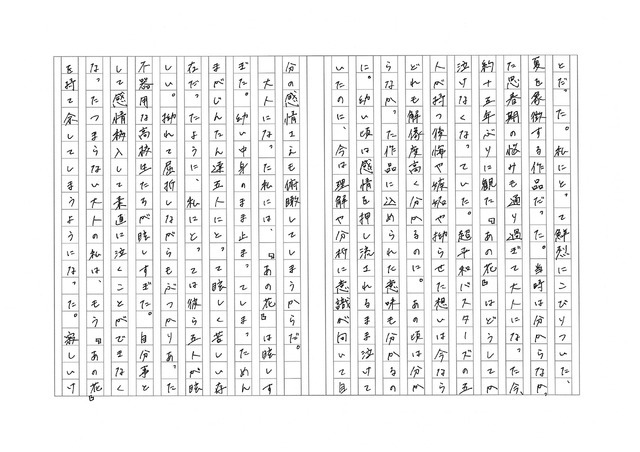 とだった。私にとって鮮烈にこびりついた、
夏を象徴する作品だった。当時は分からなか
った思春期の悩みも通り過ぎて大人になった今、
約十五年ぶりに観た『あの花』はどうしてか
泣けなくなっていた。超平和バスターズの五
人が持つ後悔や嫉妬や拗らせた想いは今なら
どれも解像度高く分かるのに、あの頃は分か
らなかった作品に込められた意味も分かるの
に。幼い頃は感情を押し流されるまま泣けて
いたのに、今は理解や分析に意識が向いて自
分の感情さえも俯瞰してしまうからだ。
大人になった私には、『あの花』は眩しす
ぎた。幼い中身のまま止まってしまっためん
まがじんたん達五人にとって眩しく苦しい存
在だったように、私にとっては彼ら五人が眩
しい。拗れて屈折しながらもぶつかりあった
不器用な高校生たちが眩しすぎた。自分事と
して感情移入して素直に泣くことができなく
なったつまらない大人の私は、もう『あの花』
を持て余してしまうようになった。寂しいけ